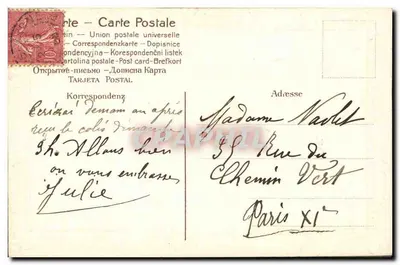 arte – Carte Postale
tin – Union postale universelle
– Correspondenzkarte – Dopisnice
pondencyjna – Korespondenční listek
artolina postale - Post card - Brefkort
Открытое письмо – Дописна Карта
TARJETA POSTAL
Korrespondenz
Adresse
Ecrirai demain ou après
reçu le colis dimanche
5h. Allons bien
on vous embrasse
Julie
Madame Nadet
35 Rue du
Chemin Vert
Paris XIe